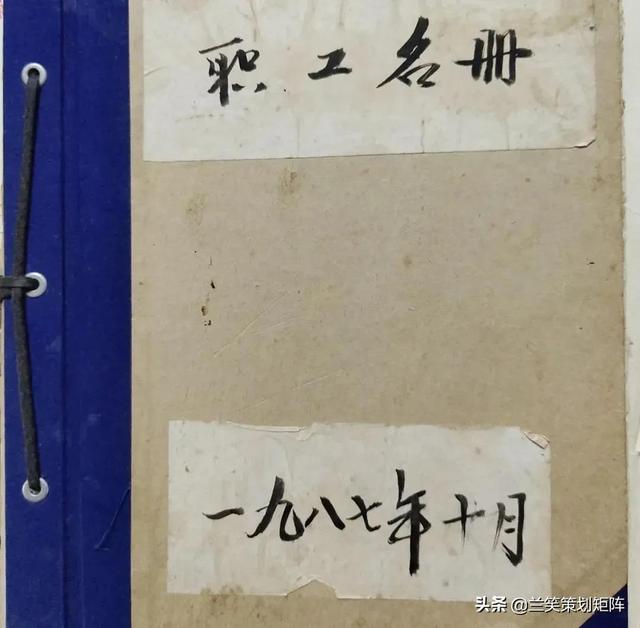 职工名册
一九八七年十月
头条 @兰笑策划矩阵